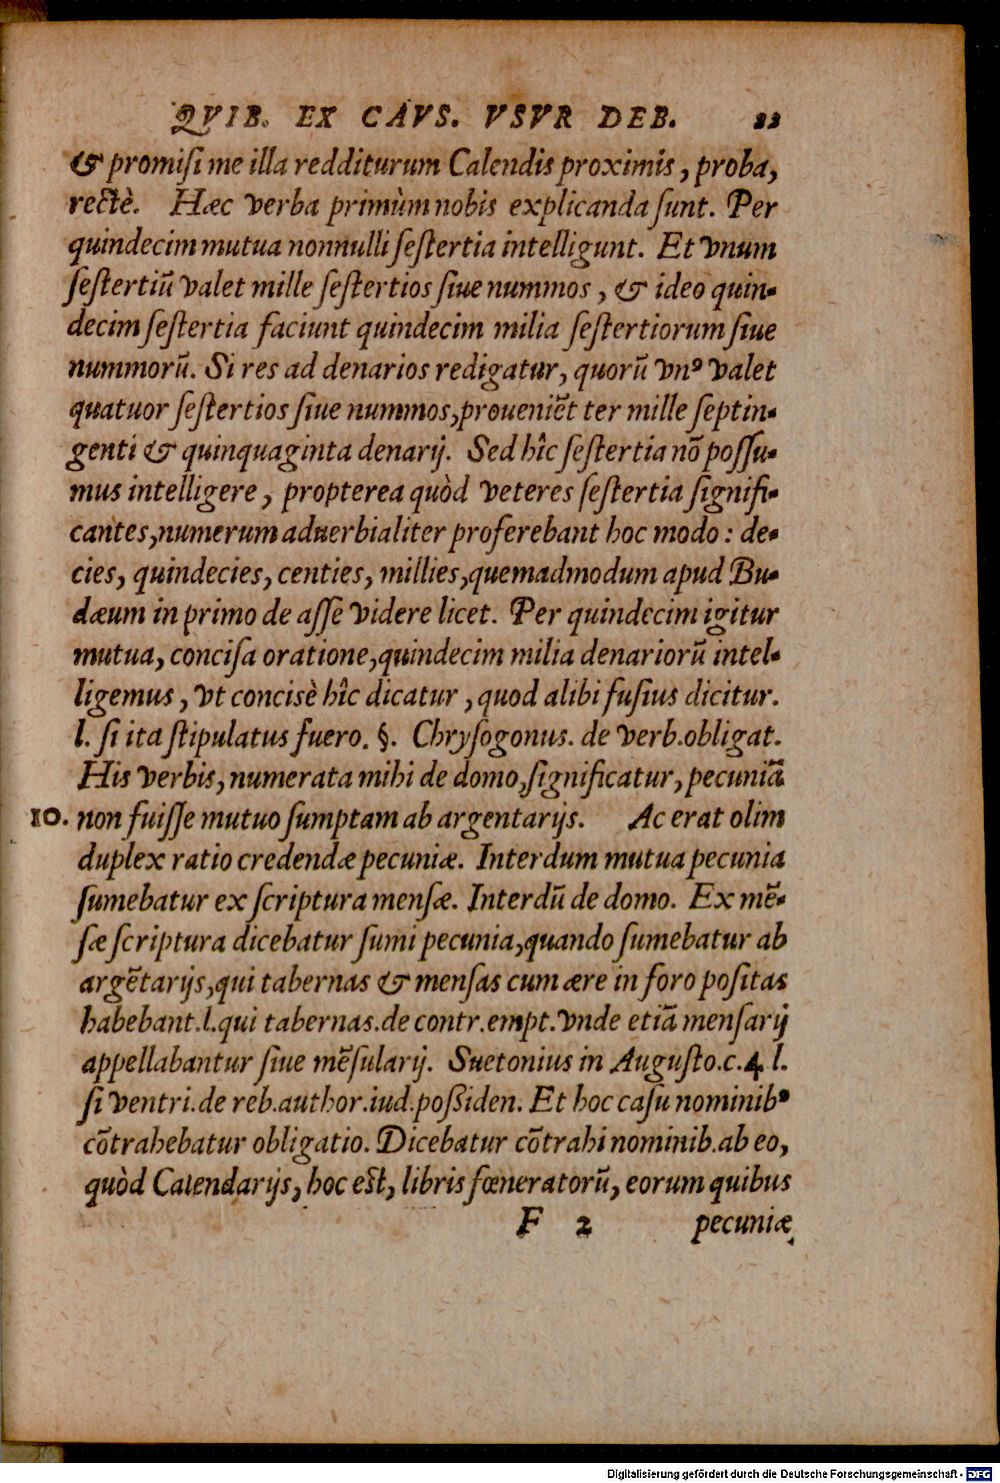 QVIB. EX CAVS. VSVR DEB. 22
& promiſi me illa redditurum Calendis proximis, proba,
rectè. Hæc verba primùm nobis explicanda ſunt. Per
quindecim mutua nonnulli ſeſtertia intelligunt. Et vnum
ſeſtertiũ valet mille ſeſtertios ſiue nummos, & ideo quin-
decim ſeſtertia faciunt quindecim milia ſeſtertiorum ſiue
nummorũ. Si res ad denarios redigatur, quorũ vnꝰ valet
quatuor ſeſtertios ſiue nummos, proueniẽt ter mille ſeptin-
genti & quinquaginta denarij. Sed hîc ſeſtertia nõ poſſu-
mus intelligere, propterea quòd veteres ſeſtertia ſignifi-
cantes, numerum aduerbialiter proferebant hoc modo: de-
cies, quindecies, centies, millies, quemadmodum apud Bu-
dæum in primo de aſſe videre licet. Per quindecim igitur
mutua, conciſa oratione, quindecim milia denariorũ intel-
ligemus, vt concisè hîc dicatur, quod alibi fuſius dicitur.
l. ſi ita ſtipulatus fuero. §. Chryſogonus. de verb. obligat.
His verbis, numerata mihi de domo, ſignificatur, pecuniã
10. non fuiſſe mutuo ſumptam ab argentarijs. Ac erat olim
duplex ratio credendæ pecuniæ. Interdum mutua pecunia
ſumebatur ex ſcriptura menſæ. Interdũ de domo. Ex mẽ-
ſæ ſcriptura dicebatur ſumi pecunia, quando ſumebatur ab
argẽtarijs, qui tabernas & menſas cum ære in foro poſitas
habebant. l. qui tabernas. de contr. empt. vnde etiã menſarij
appellabantur ſiue mẽſularij. Suetonius in Auguſto. c. 4 l.
ſi ventri. de reb. author. iud. poßiden. Et hoc caſu nominibꝰ
cõtrahebatur obligatio. Dicebatur cõtrahi nominib. ab eo,
quòd Calendarijs, hoc eſt, libris fœneratorũ, eorum quibus
F 2 pecuniæ
Digitalisierung gefördert durch die Deutsche Forschungsgemeinschaft - DFG